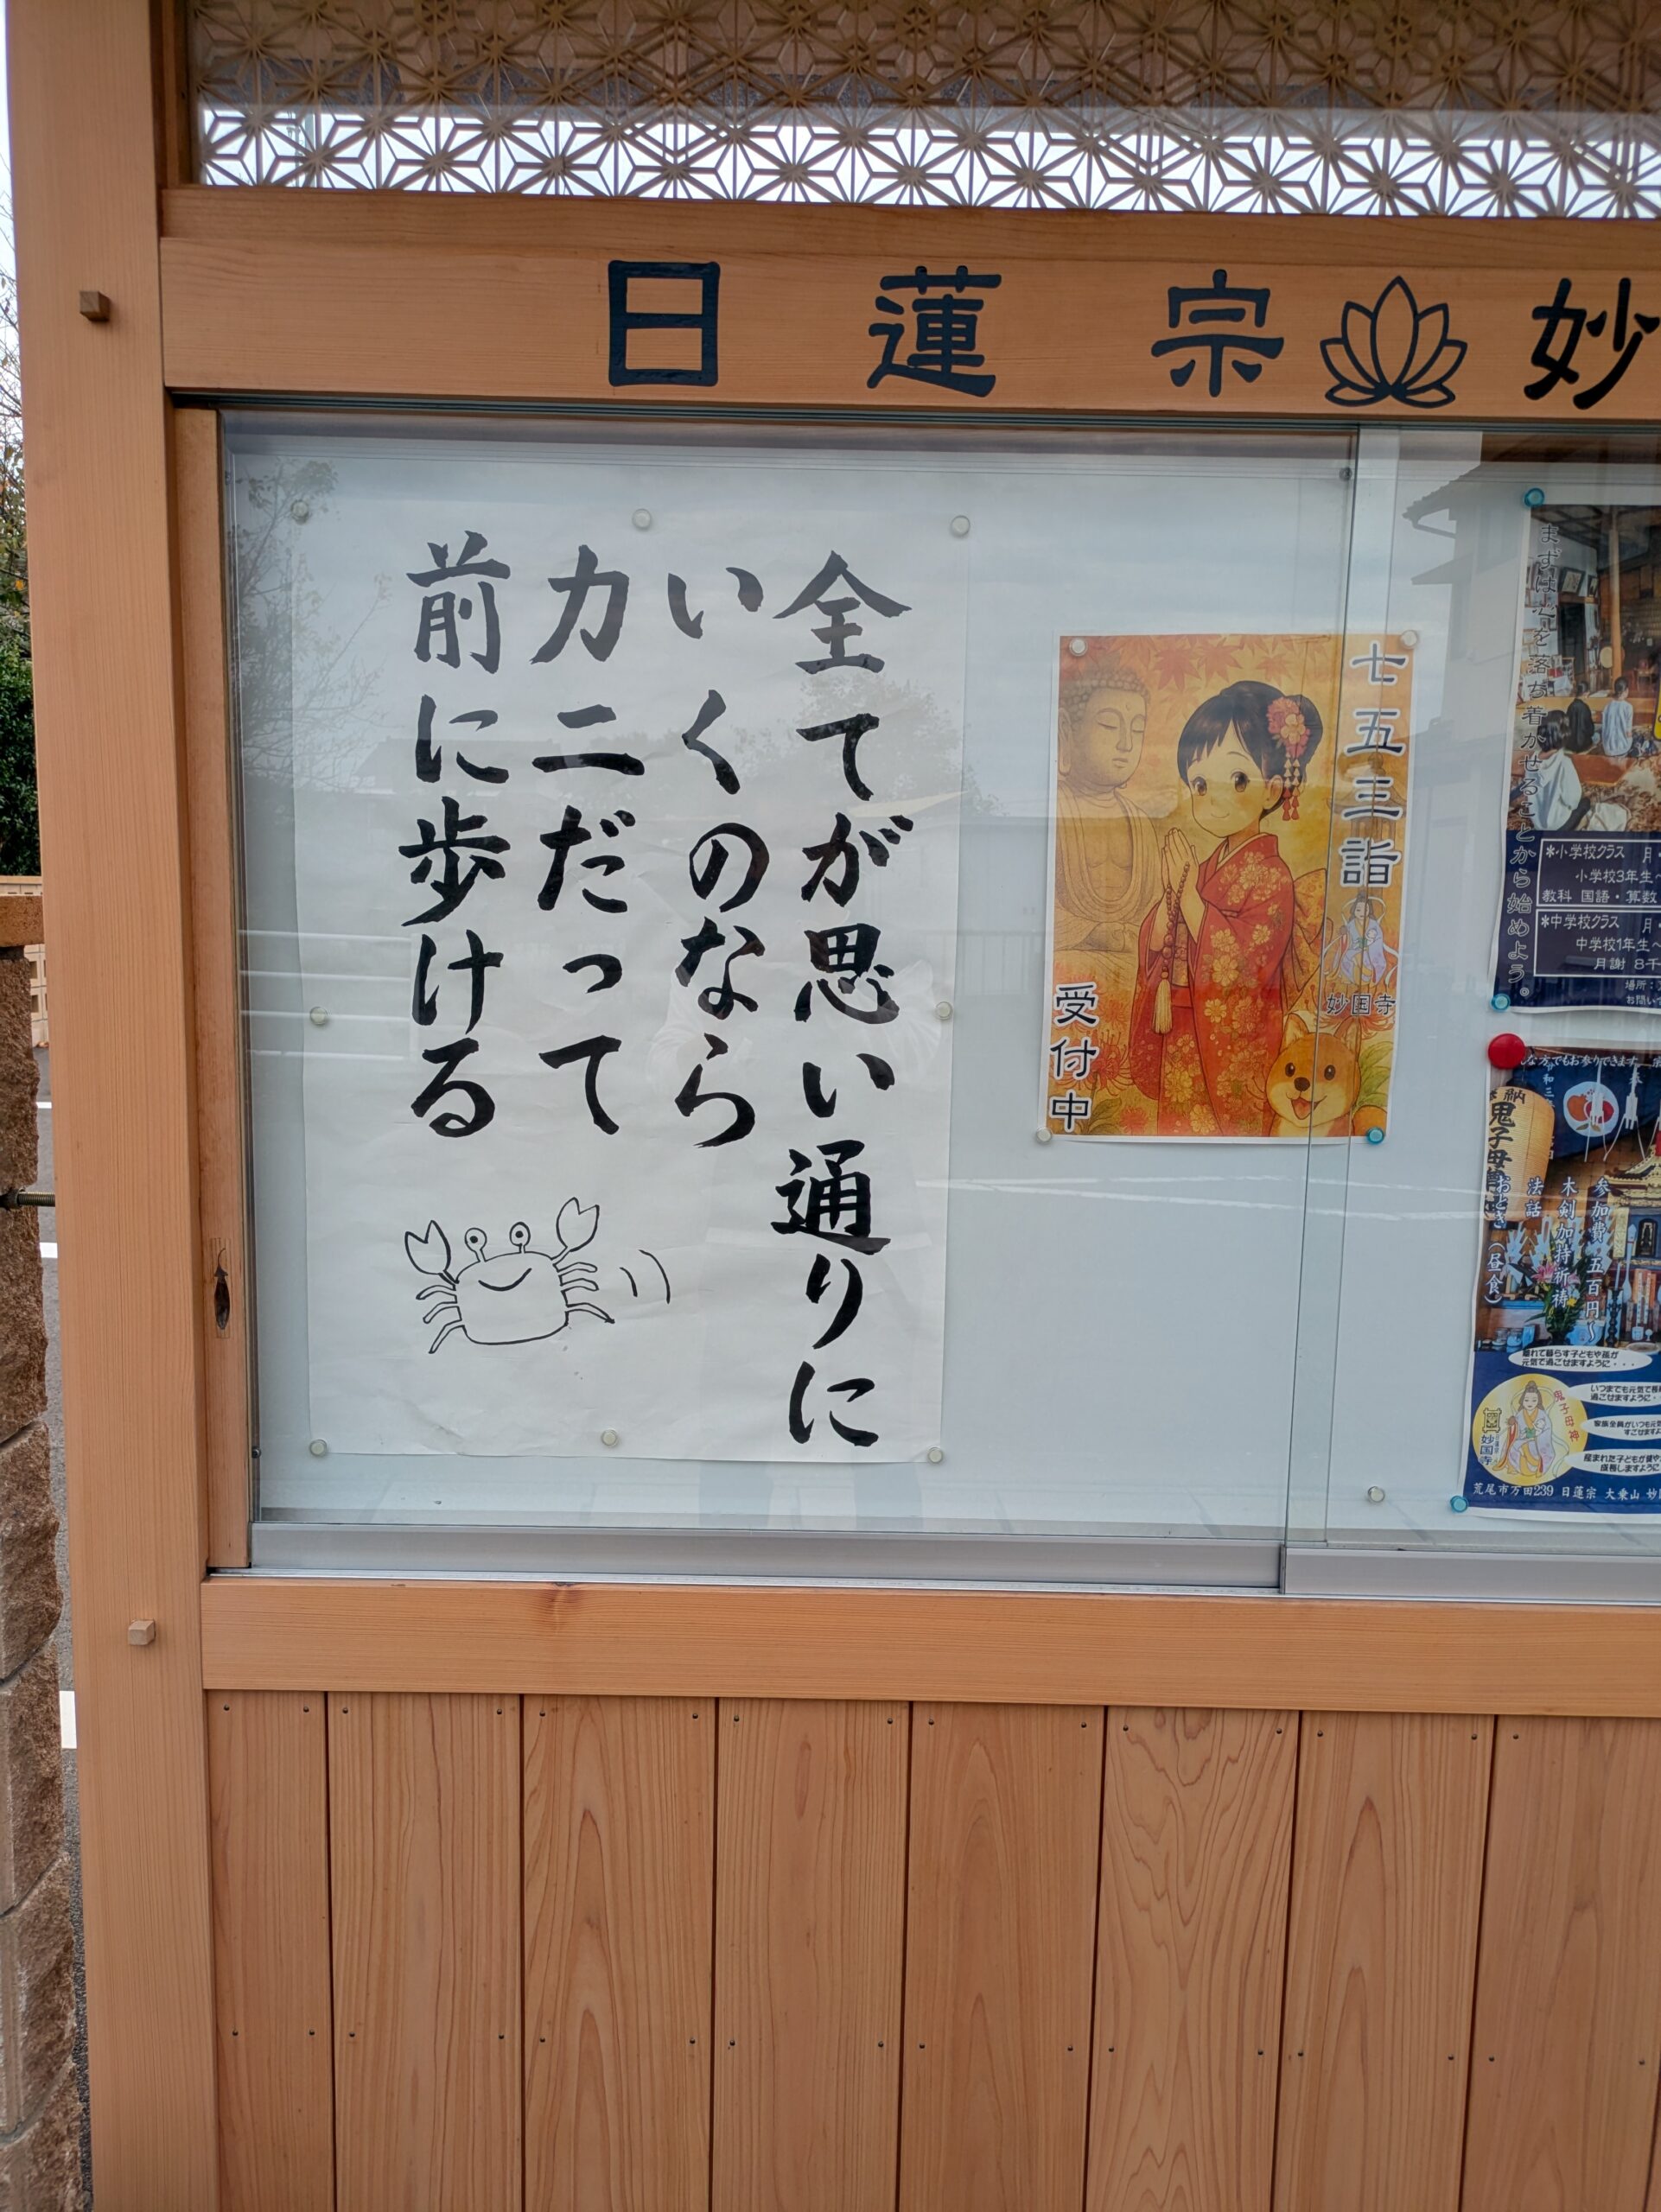 日蓮宗 妙
全てが思い通りに
いくのなら
カニだって
前に歩ける
七五三詣
妙国寺
受付中
まずは心を落ち着かせることから始めよう。
*小学校クラス 月
小学校3年生~
教科 国語・算数
*中学校クラス 月
中学校1年生~
月謝 8千
場所:
お問い
な方でもお参りできます
奉納
鬼子母
参加費 五百円~
木剣加持祈祷
法話
おとき(昼食)
離れて暮らす子どもや孫が
元気で過ごせますように・・・
いつまでも元気で
過ごせますように
家族全員がいつも元気
すごせますよ
産まれた子どもが健や
成長しますように
鬼子母神
妙国寺
荒尾市万田239 日蓮宗 大乗山 妙